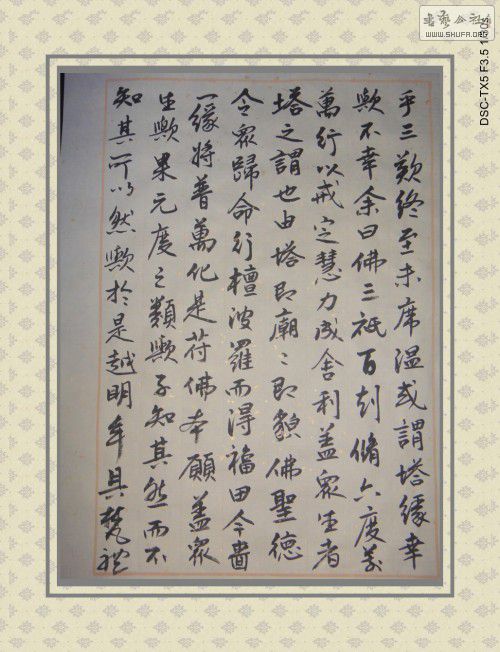 乎三歎終至未席溫或謂塔緣幸
歟不幸余曰佛三祇百刼脩六度萬
萬行以戒定慧力成舍利蓋眾生者
塔之謂也由塔即廟〻即貌佛聖德
令眾歸命行檀波羅而得福田今嗇
一緣將普萬化是苻佛本願蓋眾
生歟果元度之類歟子知其然而不
知其所以然歟於是越明年具梵禮
书艺公社
WWW.SHUFA.ORG
DSC-TX5 F3.5